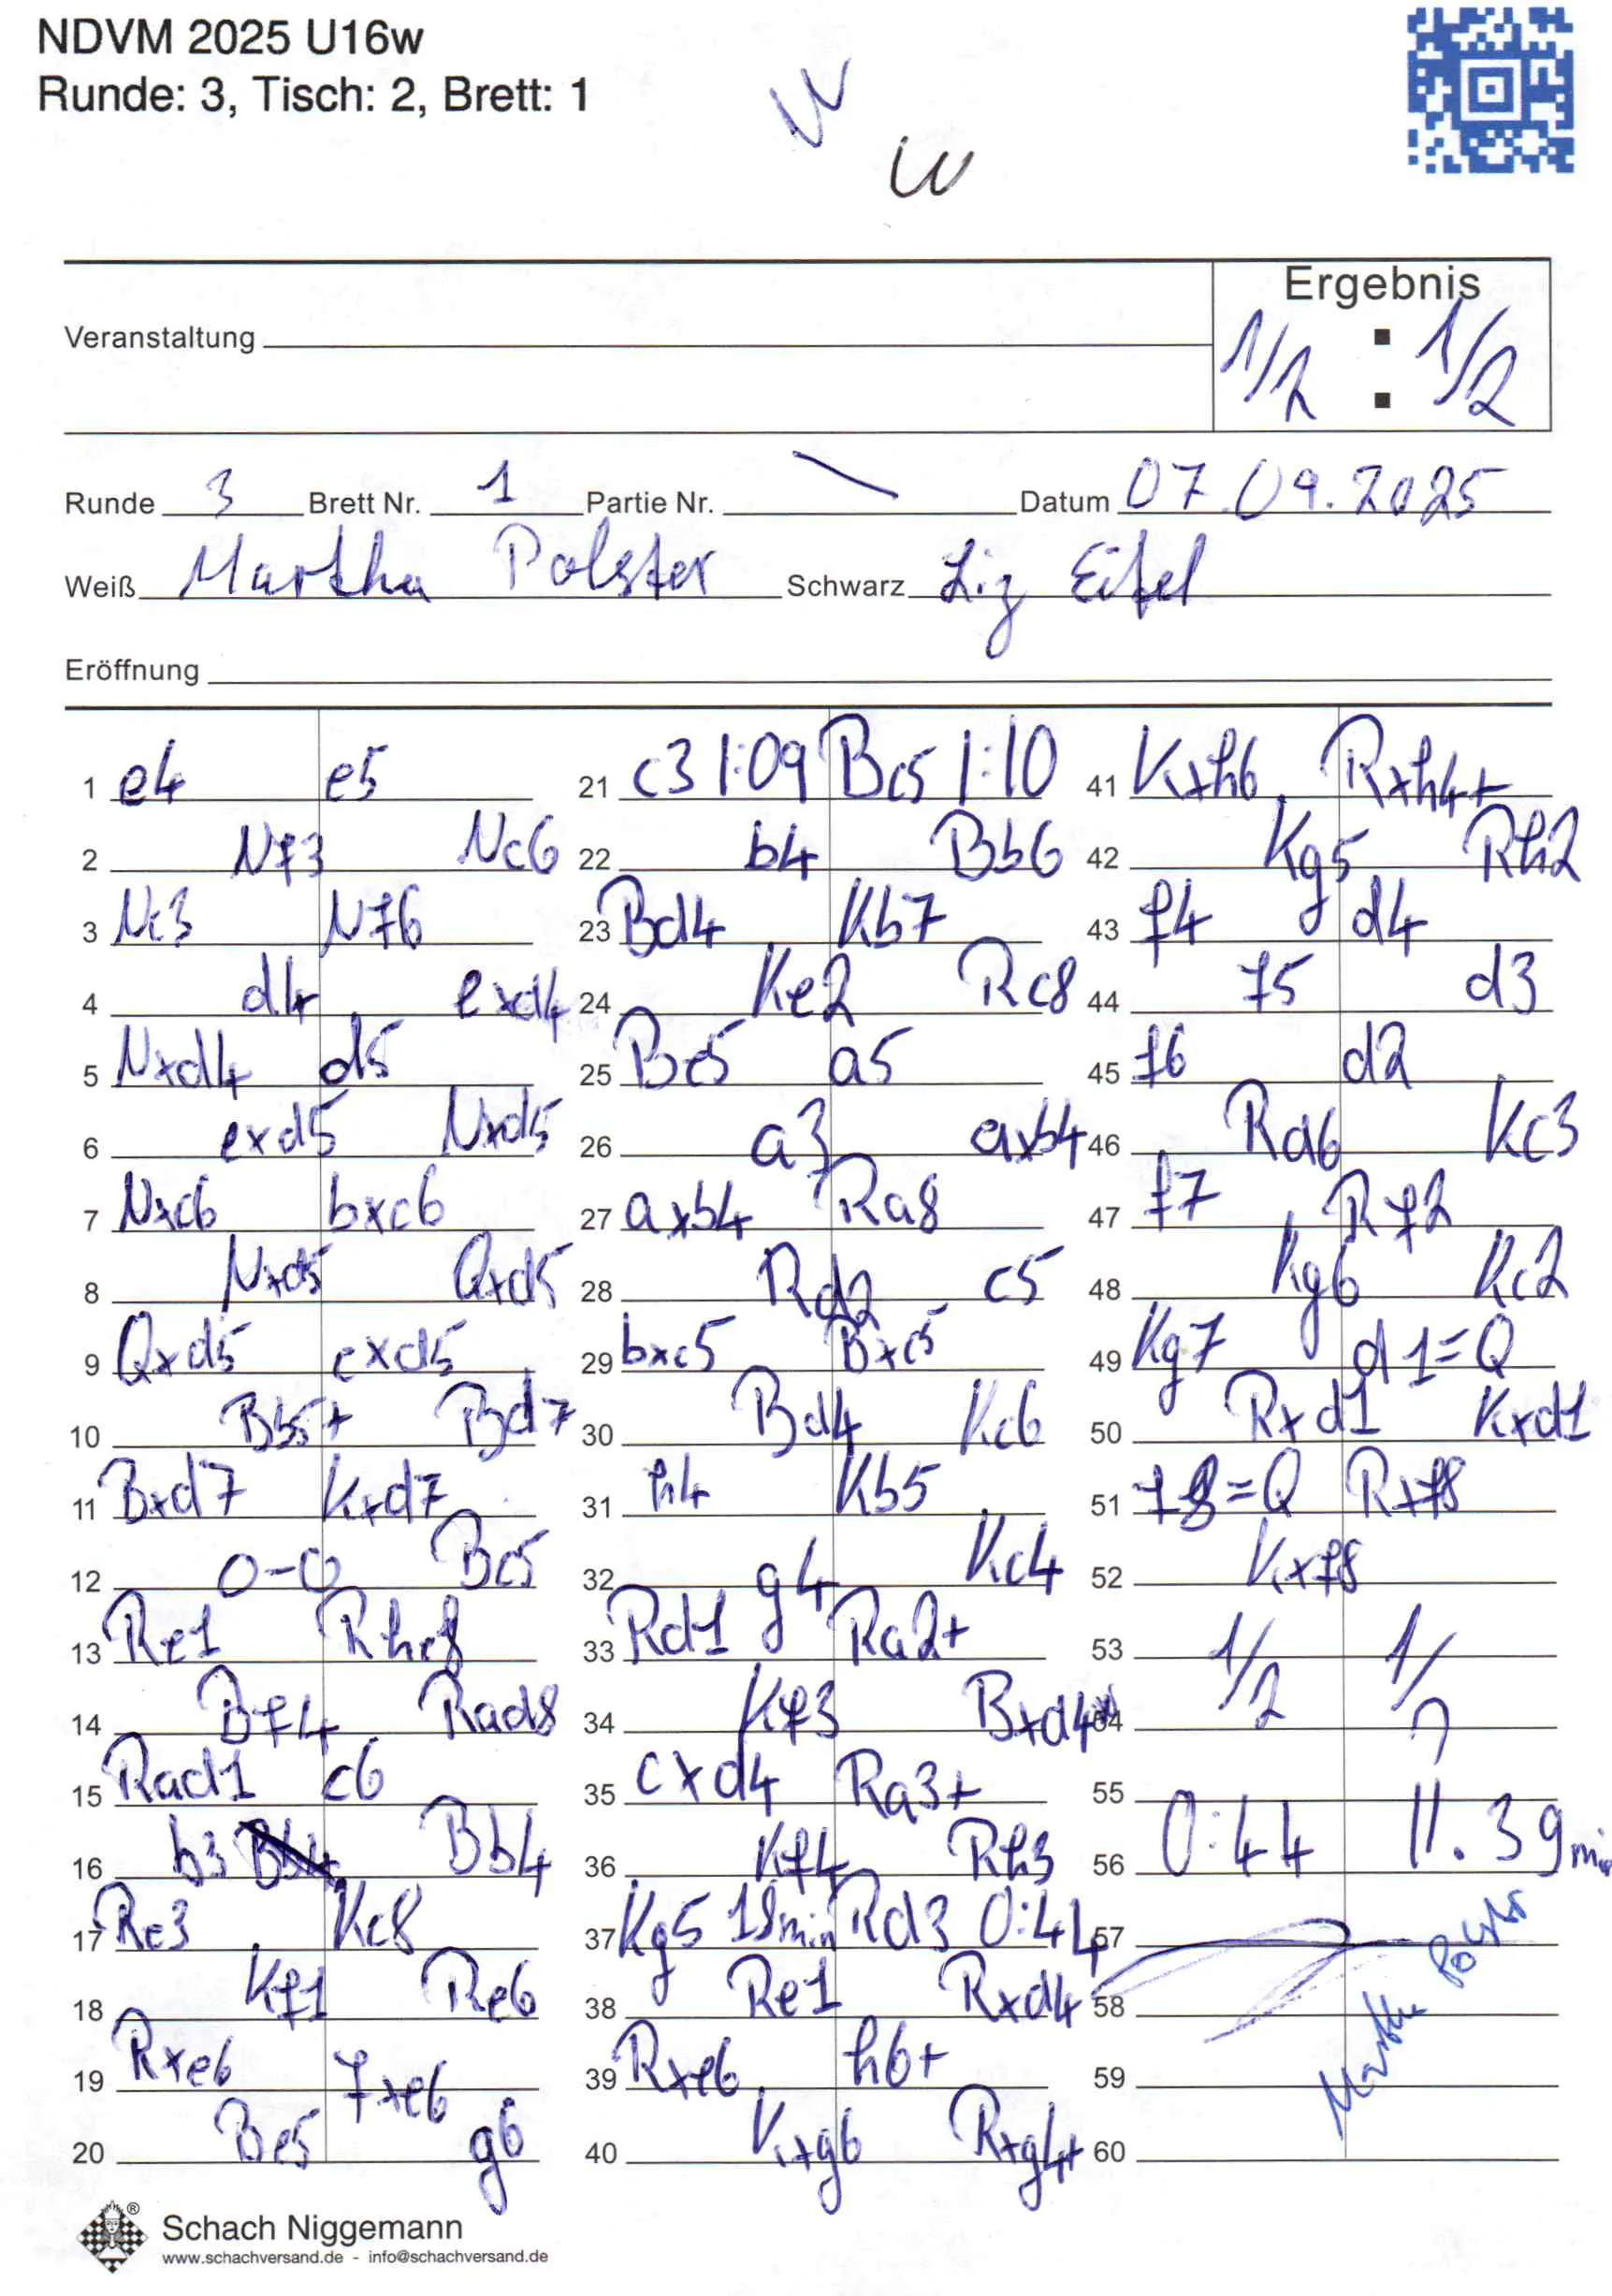 NDVM 2025 U16w
Runde: 3, Tisch: 2, Brett: 1
W
W
Ergebnis
Veranstaltung
1/2 : 1/2
Runde 3 Brett Nr. 1 Partie Nr. Datum 07.09.2025
Weiß Martha Polster Schwarz Liz Eifel
Eröffnung
1 e4 e5
2 Nf3 Nc6
3 Nc3 Nf6
4 d4 exd4
5 Nxd4 d5
6 exd5 Nxd5
7 Nxc6 bxc6
8 Nxd5 Qxd5
9 Qxd5 cxd5
10 Bb5+ Bd7
11 Bxd7 Kxd7
12 0-0 Bc5
13 Re1 Rhe8
14 Bf4 Rad8
15 Rad1 c6
16 b3 Bb4 Bb4
17 Re3 Kc8
18 Kf1 Re6
19 Rxe6 fxe6
20 Be5 g6
21 c3 1:09 Bc5 1:10
22 b4 Bb6
23 Bd4 Kb7
24 Ke2 Rc8
25 Be5 a5
26 a3 axb4
27 axb4 Ra8
28 Rd2 c5
29 bxc5 Bxc5
30 Bd4 Kc6
31 h4 Kb5
32 g4 Kc4
33 Rd1 Ra2+
34 Kf3 Bxd4
35 cxd4 Ra3+
36 Kf4 Rh3
37 Kg5 18min Rd3 0:44
38 Re1 Rxd4
39 Rxe6 h6+
40 Kxg6 Rxg4+
41 Kxh6 Rxh4+
42 Kg5 Rh2
43 f4 d4
44 f5 d3
45 f6 d2
46 Rd6 Kc3
47 f7 Rf2
48 Kg6 Kc2
49 Kg7 d1=Q
50 Rxd1 Kxd1
51 f8=Q Rxf8
52 Kxf8
53 1/2 1/2
54
55
56 0:44 11.39min
57
58
59
60
Martha Polster
Schach Niggemann
www.schachversand.de - info@schachversand.de